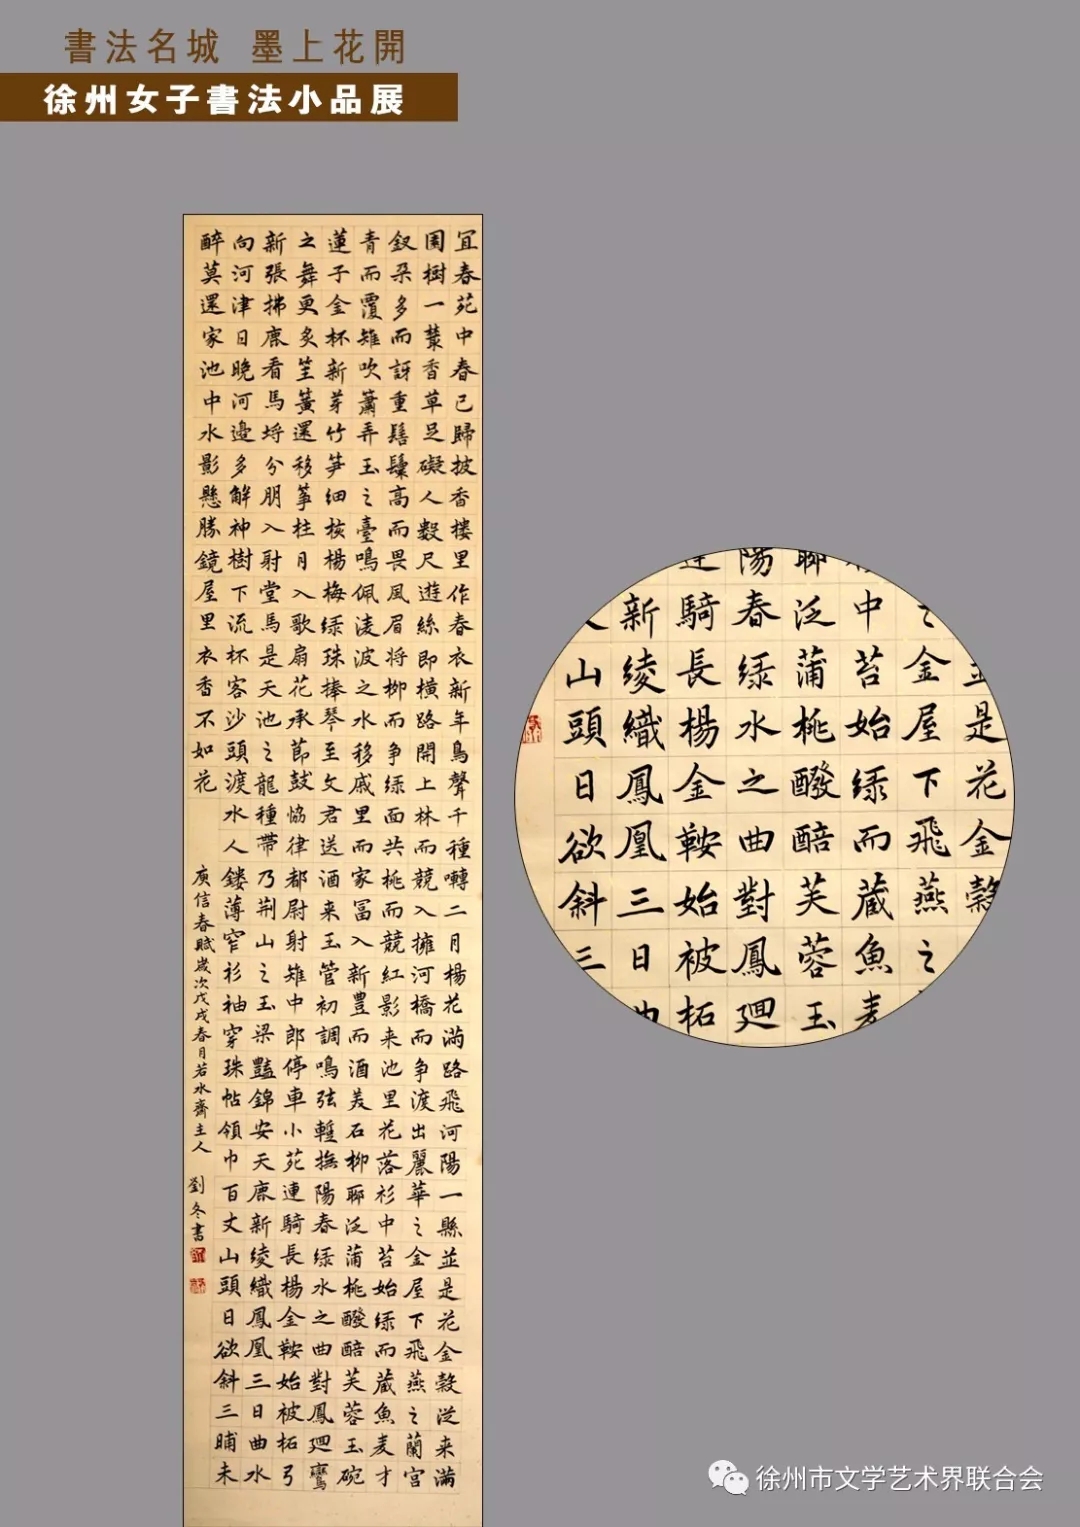 書法名城 墨上花開
徐州女子書法小品展
宜春苑中春已歸披香楼里作春衣新年鳥聲千種囀二月楊花滿路飛河陽一縣並是花金穀從来滿
園樹一叢香草足礙人數尺遊絲即横路開上林而競入擁河橋而争渡出麗華之金屋下飛燕之蘭宮
釵朵多而訝重髻鬟高而畏風眉将柳而争緑面共桃而競紅影来池里花落衫中苔始緑而蔵魚麦才
青而覆雉吹簫弄玉之臺鳴佩淩波之水移戚里而家冨入新豊而酒美石柳聊泛蒲桃醱醅芙蓉玉碗
蓮子金杯新芽竹笋細核楊梅緑珠捧琴至文君送酒来玉管初調鳴弦蹔撫陽春緑水之曲對鳳廻鸞
之舞更炙笙簧還移筝柱月入歌扇花承節鼓協律都尉射雉中郎停車小苑連騎長楊金鞍始被柘弓
新張拂塵看馬埒分朋入射堂馬是天池之龍種帶乃荆山之玉梁豔錦安天鹿新綾織鳳凰三日曲水
向河津日晚河邊多解神樹下流杯客沙頭渡水人鏤薄窄衫袖穿珠帖領巾百丈山頭日欲斜三晡未
醉莫還家池中水影懸勝鏡屋里衣香不如花
庾信春賦歲次戊戌春月若水齋主人 劉冬書
並是花金穀
之金屋下飛燕之
中苔始緑而蔵魚麦
聊泛蒲桃醱醅芙蓉玉
陽春緑水之曲對鳳廻
連騎長楊金鞍始被柘
新綾織鳳凰三日曲
山頭日欲斜三
徐州市文学艺术界联合会